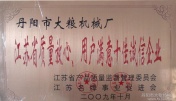 丹阳市大粮机械厂
江苏省质量放心、用户满意十佳诚信企业
江苏省产品质量监督管理委员会
江苏名牌事业促进会
二〇〇九年十月